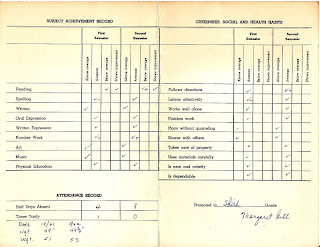 SUBJECT ACHIEVEMENT RECORD
First Semester
Second Semester
Above average
Average
Below average
Shows improvement
Above average
Average
Below average
Shows improvement
Reading
Spelling
Writing
Oral Expression
Written Expression
Number Work
Art
Music
Physical Education
ATTENDANCE RECORD
Half Days Absent 4 8
Times Tardy 1 0
Date 10/21
Hgt. 49"
Wgt. 51 53
CITIZENSHIP, SOCIAL AND HEALTH HABITS
First Semester
Second Semester
Above average
Average
Below average
Shows improvement
Above average
Average
Below average
Shows improvement
Follows directions
Listens attentively
Works well alone
Finishes work
Plays without quarreling
Shares with others
Takes care of property
Uses materials carefully
Is neat and orderly
Is dependable
Promoted to Third Grade
Margaret